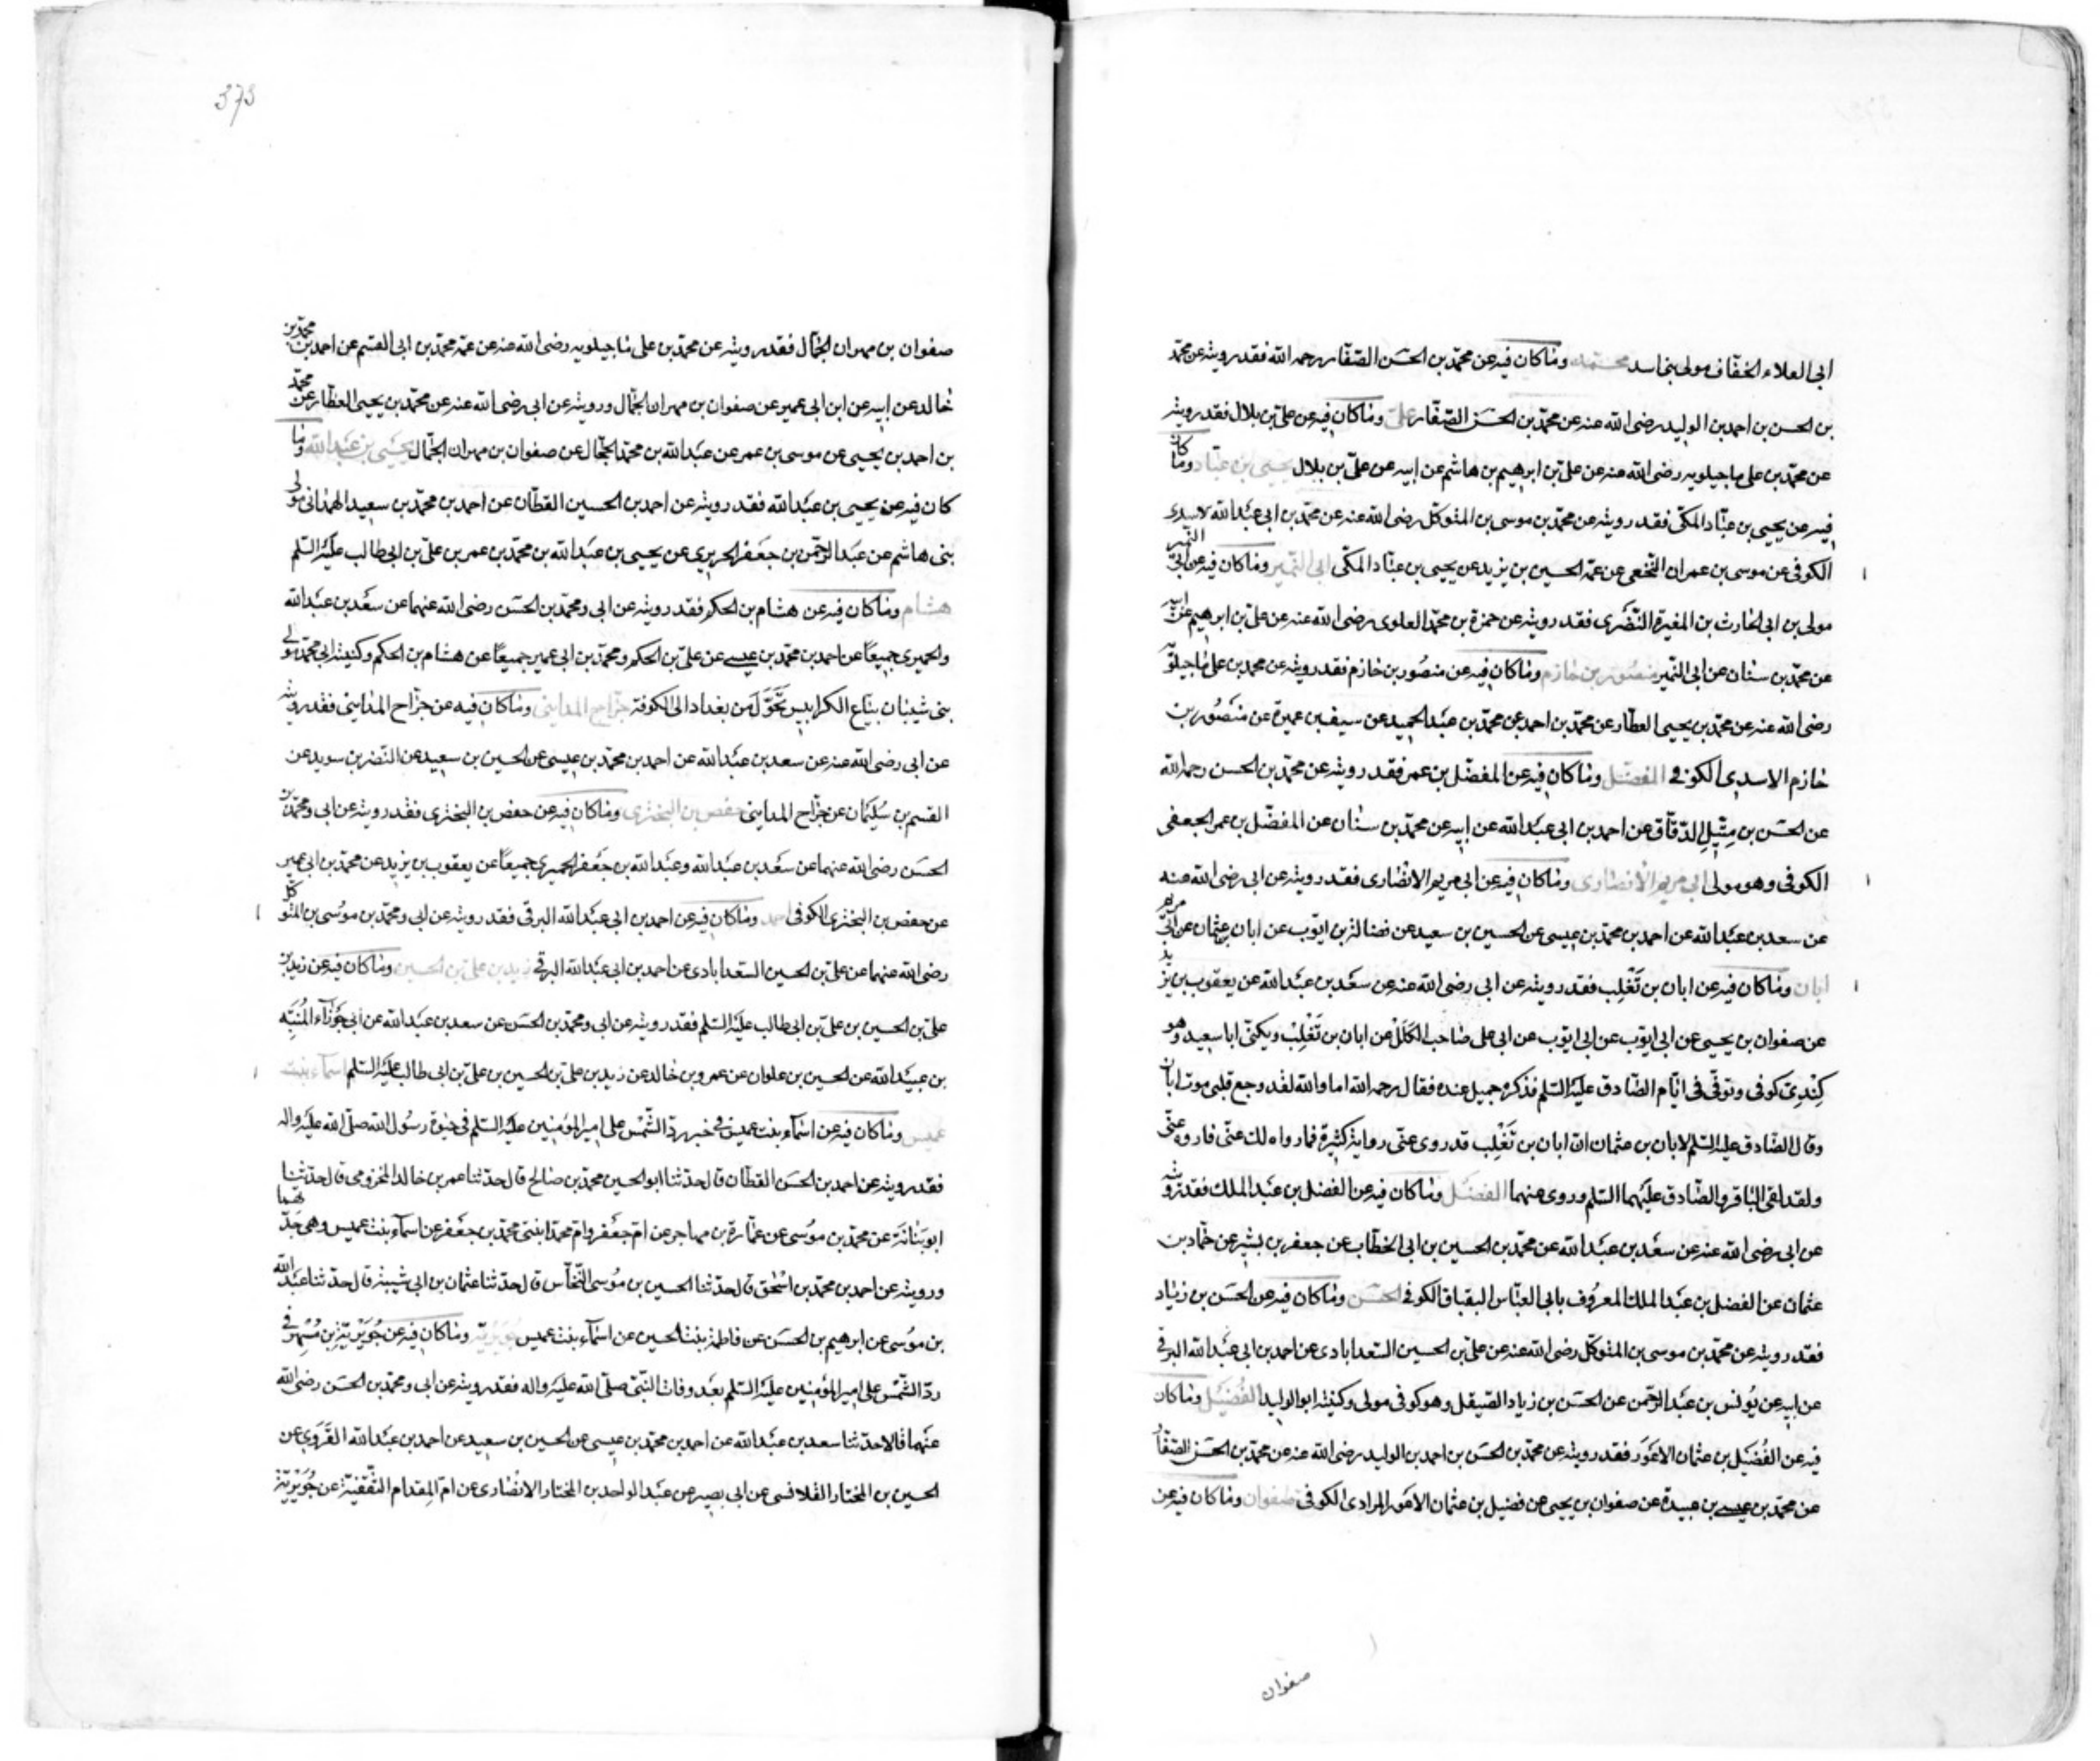 ابى العلاء الخفاف مولى بنى اسد محمد وما كان فيه عن محمد بن الحسن الصفار رحمه الله فقد رويته عن محمد
بن الحسن بن احمد بن الوليد رضى الله عنه عن محمد بن الحسن الصفار على وما كان فيه عن على بن بلال فقد رويته
عن محمد بن على ماجيلويه رضى الله عنه عن على بن ابرهيم بن هاشم عن ابيه عن على بن بلال يحيى بن عباد وما كان
فيه عن يحيى بن عباد المكى فقد رويته عن محمد بن موسى بن المتوكل رضى الله عنه عن محمد بن ابى عبد الله الاسدى
الكوفى عن موسى بن عمران النخعى عن عمه الحسين بن يزيد عن يحيى بن عباد المكى ابى النمير وما كان فيه عن ابى النمير
مولى بن ابى الحارث بن المغيرة النضرى فقد رويته عن حمزة بن محمد العلوى رضى الله عنه عن على بن ابرهيم عن ابيه
عن محمد بن سنان عن ابى النمير منصور بن حازم وما كان فيه عن منصور بن حازم فقد رويته عن محمد بن على ماجيلويه
رضى الله عنه عن محمد بن يحيى العطار عن محمد بن احمد عن محمد بن عبد الحميد عن سيف بن عميرة عن منصور بن
حازم الاسدى الكوفى المفضل وما كان فيه عن المفضل بن عمر فقد رويته عن محمد بن الحسن رحمه الله
عن الحسن بن متيل الدقاق عن احمد بن ابى عبد الله عن ابيه عن محمد بن سنان عن المفضل بن عمر الجعفى
الكوفى وهو مولى ابى مريم الانصارى وما كان فيه عن ابى مريم الانصارى فقد رويته عن ابى رضى الله عنه
عن سعد بن عبد الله عن احمد بن محمد بن عيسى عن الحسين بن سعيد عن فضالة بن ايوب عن ابان بن عثمان عن ابى مريم
ابان وما كان فيه عن ابان بن تغلب فقد رويته عن ابى رضى الله عنه عن سعد بن عبد الله عن يعقوب بن يزيد
عن صفوان بن يحيى عن ابى ايوب عن ابى ايوب عن ابى على صاحب الكلل عن ابان بن تغلب ويكنى ابا سعيد وهو
كندى كوفى وتوفى فى ايام الصادق عليه السلم فذكره جميل عنده فقال رحمه الله اما والله لقد وجع قلبى موت ابان
وقال الصادق عليه السلم لابان بن عثمان ان ابان بن تغلب قد روى عنى رواية كثيرة فما رواه لك عنى فاروه عنى
ولقد لقى الباقر والصادق عليهما السلم وروى عنهما الفضل وما كان فيه عن الفضل بن عبد الملك فقد رويته
عن ابى رضى الله عنه عن سعد بن عبد الله عن محمد بن الحسين بن ابى الخطاب عن جعفر بن بشير عن حماد بن
عثمان عن الفضل بن عبد الملك المعروف بابى العباس البقباق الكوفى الحسن وما كان فيه عن الحسن بن زياد
فقد رويته عن محمد بن موسى بن المتوكل رضى الله عنه عن على بن الحسين السعدابادى عن احمد بن ابى عبد الله البرقى
عن ابيه عن يونس بن عبد الرحمن عن الحسن بن زياد الصيقل وهو كوفى مولى وكنيته ابو الوليد الفضيل وما كان
فيه عن الفضيل بن عثمان الاعور فقد رويته عن محمد بن الحسن بن احمد بن الوليد رضى الله عنه عن محمد بن الحسن الصفار
عن محمد بن عيسى بن عبيدة عن صفوان بن يحيى عن فضيل بن عثمان الاعور المرادى الكوفى صفوان وما كان فيه عن
صفوان
373
صفوان بن مهران الجمال فقد رويته عن محمد بن على ماجيلويه رضى الله عنه عن عمه محمد بن ابى القسم عن احمد بن محمد بن
خالد عن ابيه عن ابن ابى عمير عن صفوان بن مهران الجمال ورويته عن ابى رضى الله عنه عن محمد بن يحيى العطار عن محمد
بن احمد بن يحيى عن موسى بن عمر عن عبد الله بن محمد الحجال عن صفوان بن مهران الجمال يحيى بن عبد الله وما
كان فيه عن يحيى بن عبد الله فقد رويته عن احمد بن الحسين القطان عن احمد بن محمد بن سعيد الهمدانى مولى
بنى هاشم عن عبد الرحمن بن جعفر الحريرى عن يحيى بن عبد الله بن محمد بن عمر بن على بن ابى طالب عليه السلم
هشام وما كان فيه عن هشام بن الحكم فقد رويته عن ابى ومحمد بن الحسن رضى الله عنهما عن سعد بن عبد الله
والحميرى جميعا عن احمد بن محمد بن عيسى عن على بن الحكم ومحمد بن ابى عمير جميعا عن هشام بن الحكم وكنيته ابى محمد مولى
بنى شيبان بياع الكرابيس تحول من بغداد الى الكوفة جراح المداينى وما كان فيه عن جراح المداينى فقد رويته
عن ابى رضى الله عنه عن سعد بن عبد الله عن احمد بن محمد بن عيسى عن الحسين بن سعيد عن النضر بن سويد عن
القسم بن سليمان عن جراح المداينى حفص بن البخترى وما كان فيه عن حفص بن البخترى فقد رويته عن ابى ومحمد بن
الحسن رضى الله عنهما عن سعد بن عبد الله وعبد الله بن جعفر الحميرى جميعا عن يعقوب بن يزيد عن محمد بن ابى عمير
عن حفص بن البخترى الكوفى احمد وما كان فيه عن احمد بن ابى عبد الله البرقى فقد رويته عن ابى ومحمد بن موسى بن المتوكل
رضى الله عنهما عن على بن الحسين السعدابادى عن احمد بن ابى عبد الله البرقى زيد بن على بن الحسين وما كان فيه عن زيد بن
على بن الحسين بن على بن ابى طالب عليه السلم فقد رويته عن ابى ومحمد بن الحسن عن سعد بن عبد الله عن ابى جوزاء المنبه
بن عبيد الله عن الحسين بن علوان عن عمرو بن خالد عن زيد بن على بن الحسين بن على بن ابى طالب عليه السلم اسماء بنت
عميس وما كان فيه عن اسماء بنت عميس فى خبر رد الشمس على امير المؤمنين عليه السلم فى حيوة رسول الله صلى الله عليه واله
فقد رويته عن احمد بن الحسن القطان قال حدثنا ابو الحسين محمد بن صالح قال حدثنا عمر بن خالد المخزومى قال حدثنا
ابو بنانة عن محمد بن موسى عن عمارة بن مهاجر عن ام جعفر وام محمد ابنتى محمد بن جعفر عن اسماء بنت عميس وهى جدتهما
ورويته عن احمد بن محمد بن اسحق قال حدثنا الحسين بن موسى النخاس قال حدثنا عثمان بن ابى شيبة قال حدثنا عبد الله
بن موسى عن ابرهيم بن الحسن عن فاطمة بنت الحسين عن اسماء بنت عميس جويرية وما كان فيه عن جويرية بن مسهر فى
رد الشمس على امير المؤمنين عليه السلم بعد وفات النبى صلى الله عليه واله فقد رويته عن ابى ومحمد بن الحسن رضى الله
عنهما قالا حدثنا سعد بن عبد الله عن احمد بن محمد بن عيسى عن الحسين بن سعيد عن احمد بن عبد الله القروى عن
الحسين بن المختار القلانسى عن ابى بصير عن عبد الواحد بن المختار الانصارى عن ام المقدام الثقفية عن جويرية